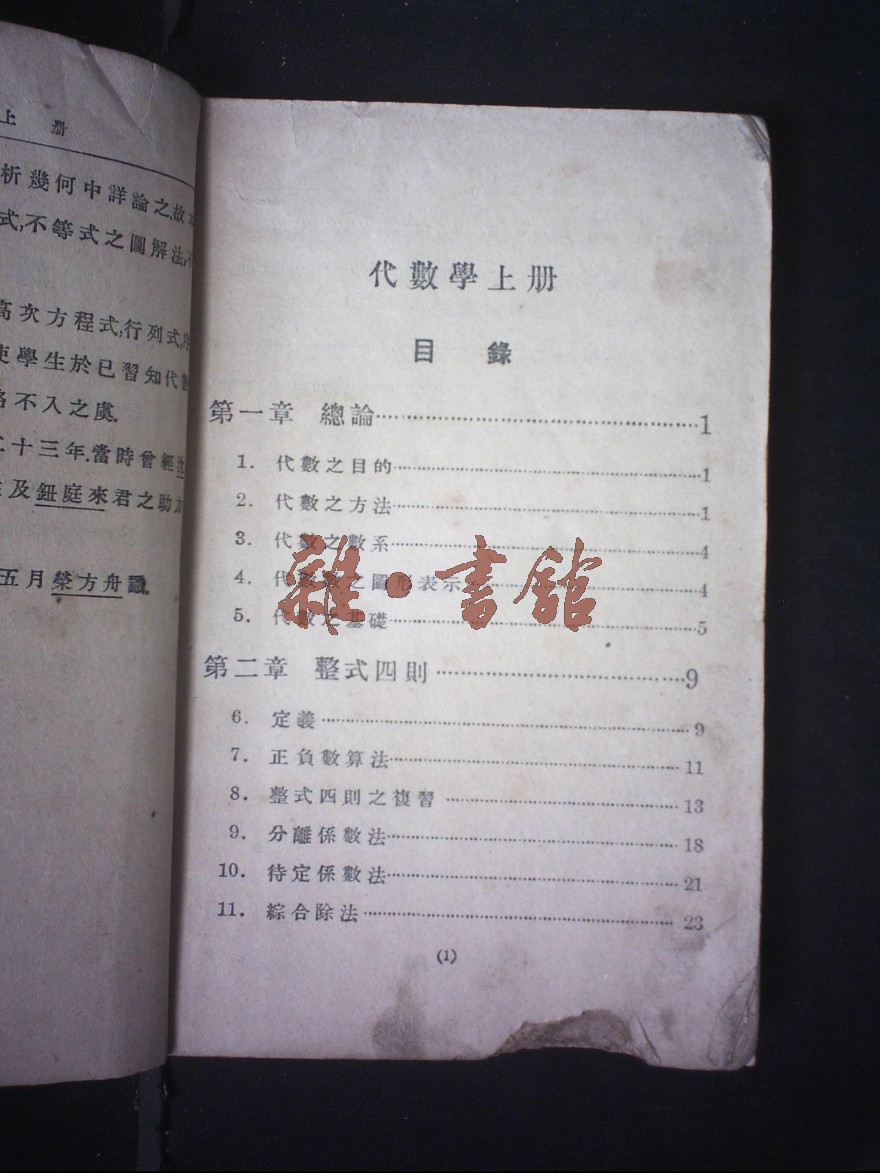 上 册
析幾何中詳論之.故
式,不等式之圖解法,不
高次方程式,行列式,
使學生於已習知代數
格不入之虞.
二十三年.當時曾經
及鈕庭來君之助
五月榮方舟識.
代數學上册
目 錄
第一章 總論 1
1. 代數之目的 1
2. 代數之方法 1
3. 代數之數系 4
4. 代數數之圖形表示 4
5. 代數之基礎 5
第二章 整式四則 9
6. 定義 9
7. 正負數算法 11
8. 整式四則之複習 13
9. 分離係數法 18
10. 待定係數法 21
11. 綜合除法 23
(1)
雜·書館